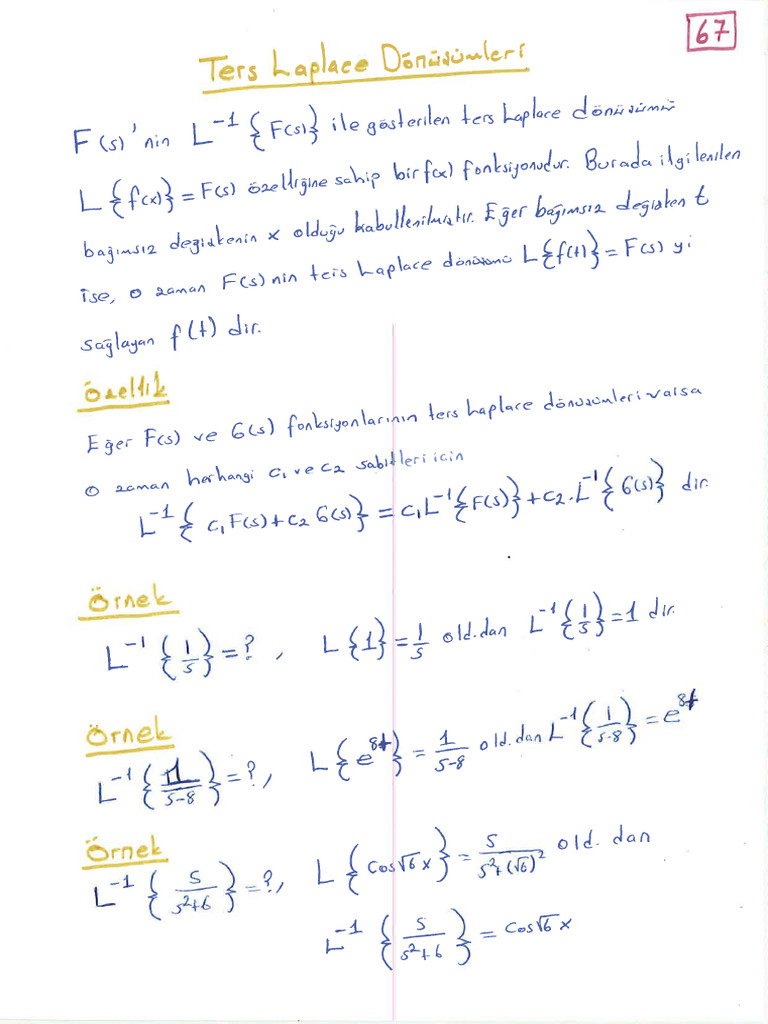 67
Ters Laplace Dönüşümleri
F(s)'nin L⁻¹{F(s)} ile gösterilen ters Laplace dönüşümü
L{f(x)} = F(s) özelliğine sahip bir f(x) fonksiyonudur. Burada ilgilenilen
bağımsız değişkenin x olduğu kabullenilmiştir. Eğer bağımsız değişken t
ise, o zaman F(s)nin ters Laplace dönüşümü L{f(t)} = F(s) yi
sağlayan f(t) dir.
Özellik
Eğer F(s) ve G(s) fonksiyonlarının ters Laplace dönüşümleri varsa
o zaman herhangi c₁ ve c₂ sabitleri için
L⁻¹{c₁F(s)+c₂G(s)} = c₁L⁻¹{F(s)}+c₂.L⁻¹{G(s)} dir.
Örnek
L⁻¹{1/s} = ? , L{1} = 1/s old.dan L⁻¹{1/s} = 1 dir.
Örnek
L⁻¹{1/(s-8)} = ?, L{e^(8t)} = 1/(s-8) old.dan L⁻¹{1/(s-8)} = e^(8t)
Örnek
L⁻¹{s/(s²+6)} = ?, L{cos√6 x} = s/(s²+(√6)²) old. dan
L⁻¹{s/(s²+6)} = cos√6 x